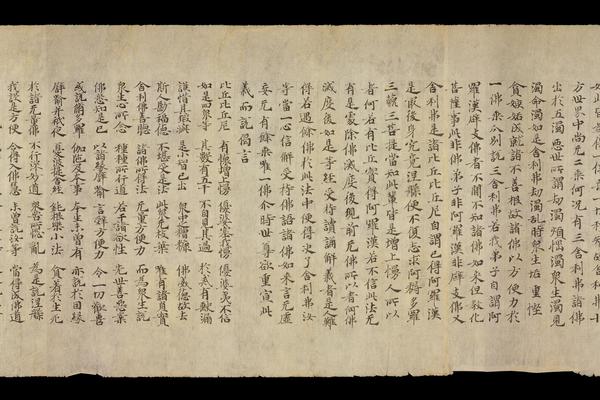 如此皆為得一佛乘一切種智故舍利弗十
方世界中尚无二乘何況有三舍利弗諸佛
出於五濁惡世所謂劫濁煩惱濁眾生濁見
濁命濁如是舍利弗劫濁亂時眾生垢重慳
貪嫉妬成就諸不善根故諸佛以方便力於
一佛乘分別說三舍利弗若我弟子自謂阿
羅漢辟支佛者不聞不知諸佛如來但教化
菩薩事此非佛弟子非阿羅漢非辟支佛又
舍利弗是諸比丘比丘尼自謂已得阿羅漢
是最後身究竟涅槃便不復志求阿耨多羅
三藐三菩提當知此輩皆是增上慢人所以
者何若有比丘實得阿羅漢若不信此法无
有是處除佛滅度後現前无佛所以者何佛
滅度後如是等經受持讀誦解義者是人難
得若遇餘佛於此法中便得決了舍利弗汝
等當一心信解受持佛語諸佛如來言无虛
妄无有餘乘唯一佛乘尒時世尊欲重宣此
義而說偈言
比丘比丘尼 有懷增上慢 優婆塞我慢 優婆夷不信
如是四眾等 其數有五千 不自見其過 於戒有缺漏
護惜其瑕疵 是小智已出 眾中之糟糠 佛威德故去
斯人尠福德 不堪受是法 此眾无枝葉 唯有諸貞實
舍利弗善聽 諸佛所得法 无量方便力 而為眾生說
眾生心所念 種種所行道 若干諸欲性 先世善惡業
佛悉知是已 以諸緣譬喻 言辭方便力 令一切歡喜
或說修多羅 伽陀及本事 本生未曾有 亦說於因緣
譬喻并祇夜 優波提舍經 鈍根樂小法 貪著於生死
於諸无量佛 不行深妙道 眾苦所惱亂 為是說涅槃
我設是方便 令得入佛慧 未曾說汝等 當得成佛道